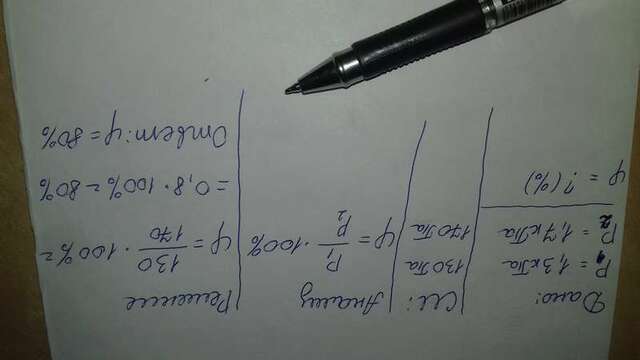 Дано:
P₁ = 1,3 кПа
P₂ = 1,7 кПа
φ = ? (%)
СИ:
130 Па
170 Па
Анализ
φ = P₁/P₂ · 100%
Решение
φ = 130/170 · 100% =
= 0,8 · 100% = 80%
Ответ: φ = 80%